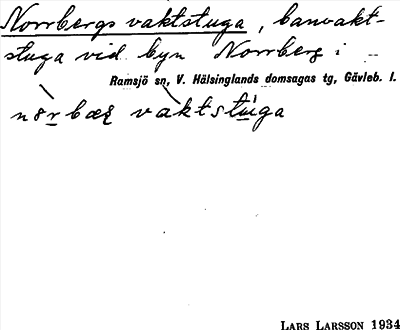 Norrbergs vaktstuga, banvakt-
stuga vid byn Norrberg i
Ramsjö sn, V. Hälsinglands domsagas tg, Gävleb. l.
nòr bæg vàktstu̇ga
LARS LARSSON 1934